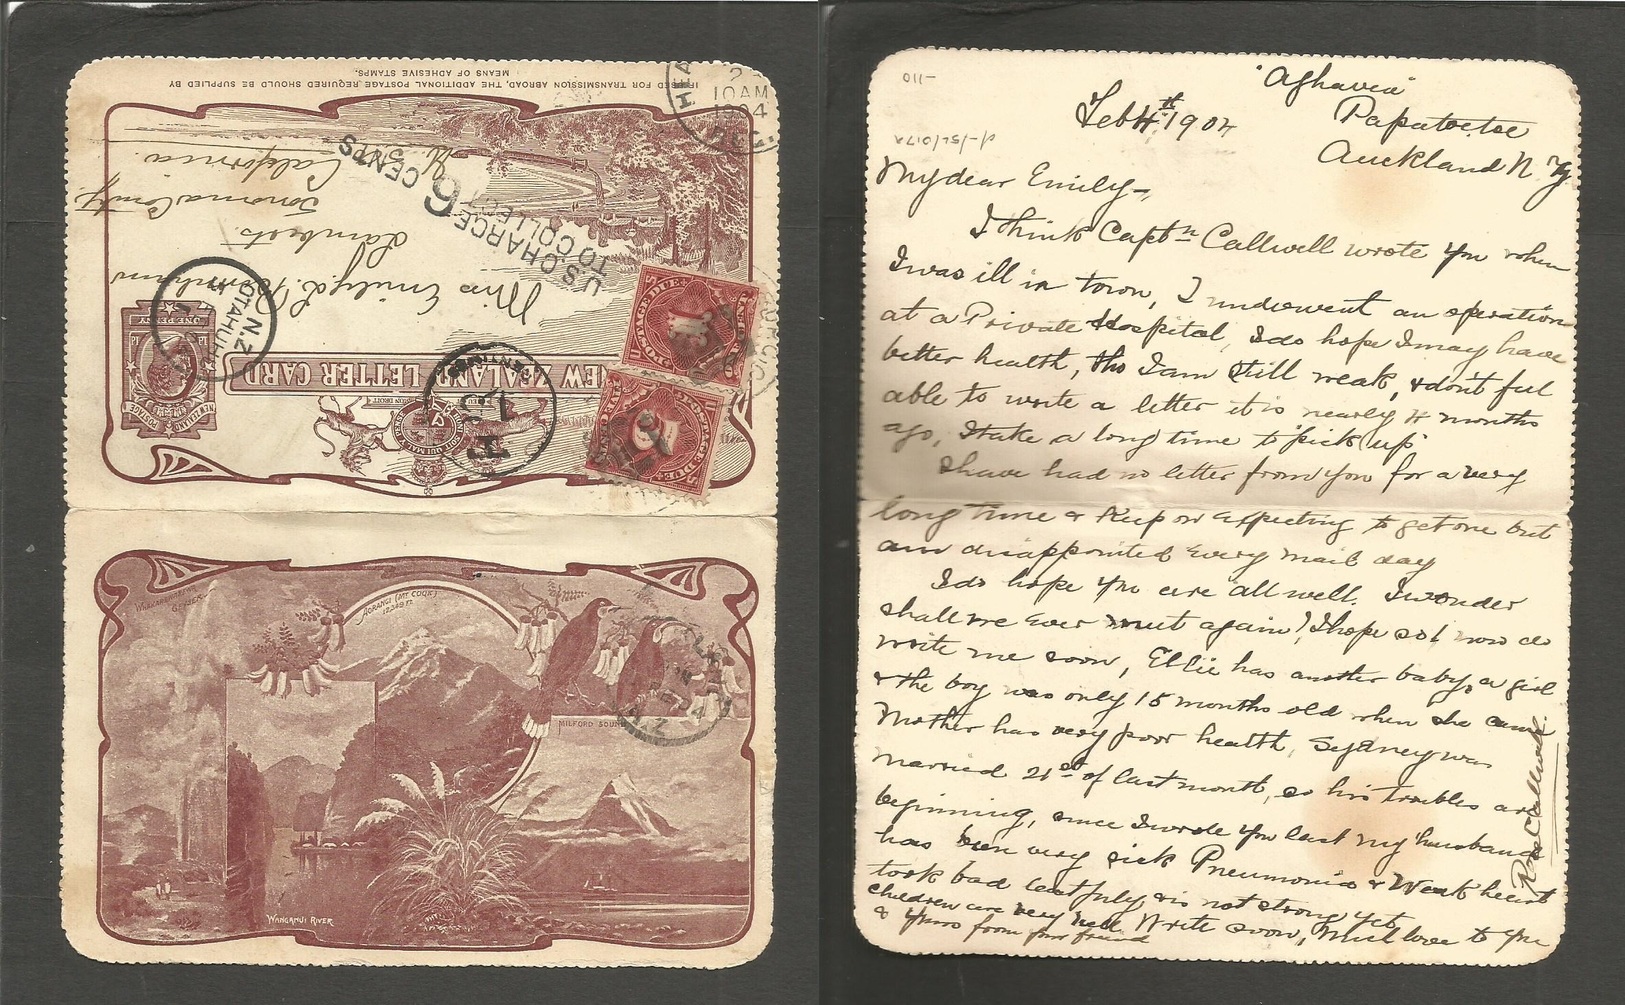 IF USED FOR TRANSMISSION ABROAD, THE ADDITIONAL POSTAGE REQUIRED SHOULD BE SUPPLIED BY
MEANS OF ADHESIVE STAMPS.
10AM
1904
U.S. CHARGE
TO COLLECT
6 CENTS
Miss Emily L.
Lamberts
Sonoma County
California
U.S.
NEW ZEALAND LETTER CARD
NEW ZEALAND
POSTAGE
ONE PENNY
OTAHUHU
N.Z
POSTAGE DUE
POSTAGE DUE
T
AORANGI (MT COOK)
12,349 FT.
MILFORD SOUND
WANGANUI RIVER
N.Z
"Aghavia"
Feb 4th 1904
Papatoetoe
Auckland N. Z
My dear Emily—
I think Captn Callwell wrote you when
I was ill in town, I underwent an operation
at a Private Hospital, I do hope I may have
better health, tho I am still weak, & dont feel
able to write a letter it is nearly 4 months
ago, I take a long time to "pick up"
I have had no letter from you for a very
long time & keep on expecting to get one but
am disappointed every mail day
I do hope you are all well. I wonder
shall we ever meet again! I hope so! now do
write me soon, Ellie has another baby, a girl
& the boy was only 15 months old when she came
Mother has very poor health, Sydney was
married 21st of last month, so his troubles are
beginning, since I wrote you last my husband
has been very sick Pneumonia & Weak heart
took bad last July & is not strong yet
children are very well Write soon, Much love to you
& yours from your friend
Callwell